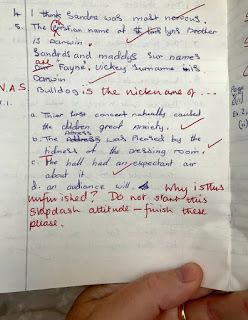 4. I think Sandra was most nervous.
5. The cristian name of lyns brother
is Darwin.
Sandras and maddys sur names
are Fayne, Vickey surname is
Darwin
N.A.S Bulldog is the nickname of ...
a. Thier first concert naturally caused
the children great anxiety.
b. The actress was pleased by the
tidness of the dressing room.
c. The hall had an expectant air
about it.
d. an audience will. Why is this
unfinished? Do not start this
slapdash attitude - finish these
please.
Page
Ex.